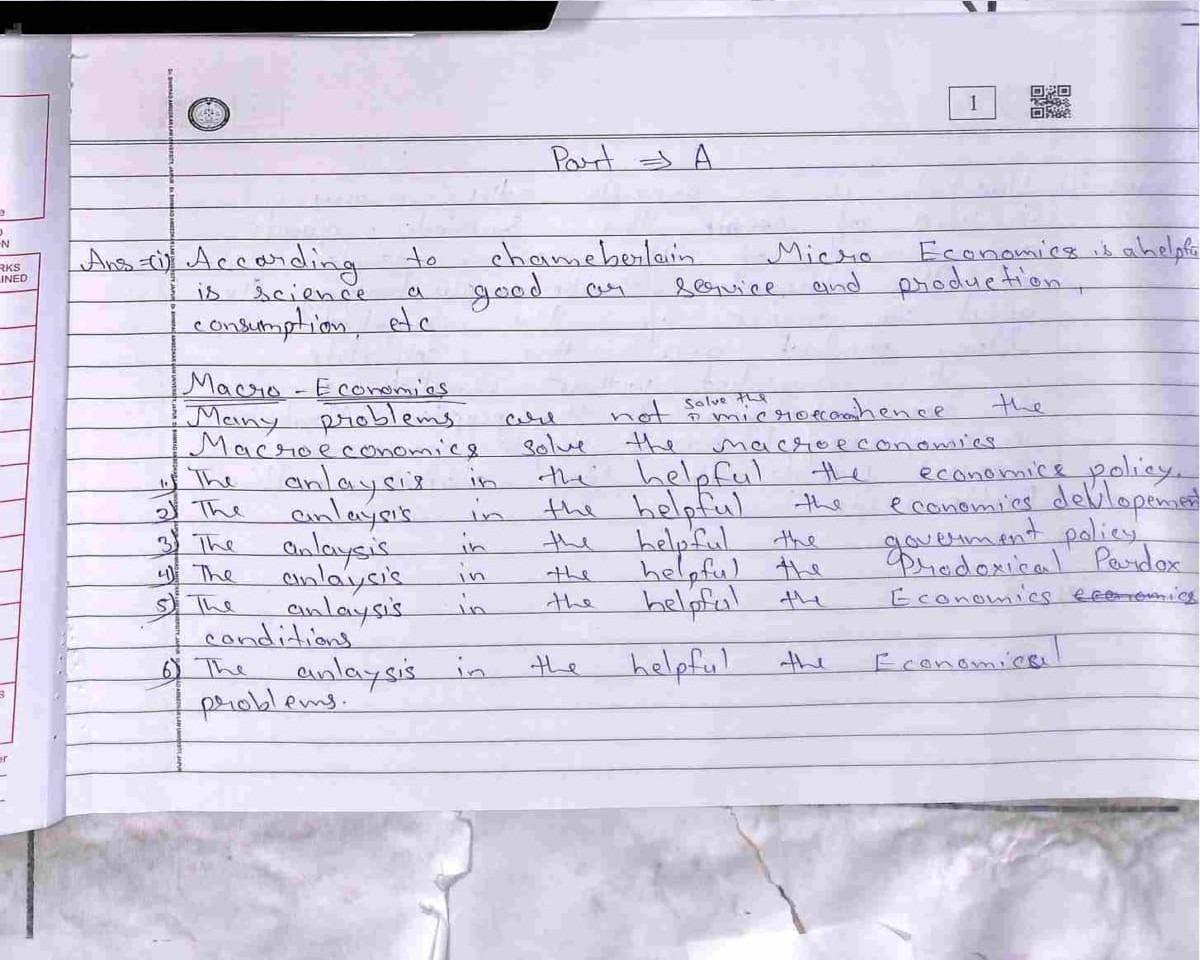 1
Part ⇒ A
Ans=(i) According to chameberlain Micro Economics is a helpfu
is science a good or service and production,
consumption, etc
Macro - Economics
Many problems are not solve the microeconomi hence the
Macroeconomics solve the macroeconomics
1) The anlaysis in the helpful the economics policy.
2) The anlaysis in the helpful the economics devlopemen
3) The anlaysis in the helpful the government policy
4) The anlaysis in the helpful the Prodoxical Pardox
5) The anlaysis in the helpful the Economics economics
conditions
6) The anlaysis in the helpful the Economical
problems.
RKS
INED